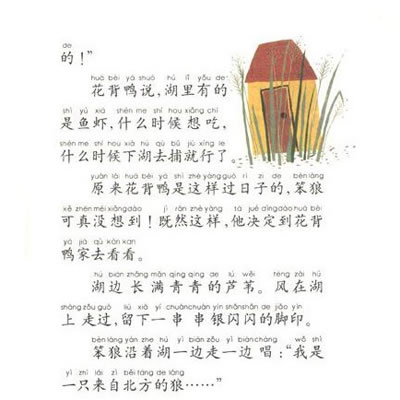 de
的！”
huā bèi yā shuō hú lǐ yǒu de
花背鸭说，湖里有的
shì yú xiā shén me shí hou xiǎng chī
是鱼虾，什么时候想吃，
shén me shí hou xià hú qù bǔ jiù xíng le
什么时候下湖去捕就行了。
yuán lái huā bèi yā shì zhè yàng guò rì zi de bèn láng
原来花背鸭是这样过日子的，笨狼
kě zhēn méi xiǎng dào jì rán zhè yàng tā jué dìng dào huā bèi
可真没想到！既然这样，他决定到花背
yā jiā qù kàn kan
鸭家去看看。
hú biān zhǎng mǎn qīng qīng de lú wěi fēng zài hú
湖边 长 满青青的芦苇。风在湖
shàng zǒu guò liú xià yí chuàn chuàn yín shǎn shǎn de jiǎo yìn
上 走过，留下一串 串银闪闪的脚印。
bèn láng yán zhe hú yì biān zǒu yì biān chàng wǒ shì
笨狼沿着湖一边走一边 唱：“我是
yì zhī lái zì běi fāng de láng
一只来自北方的狼……”